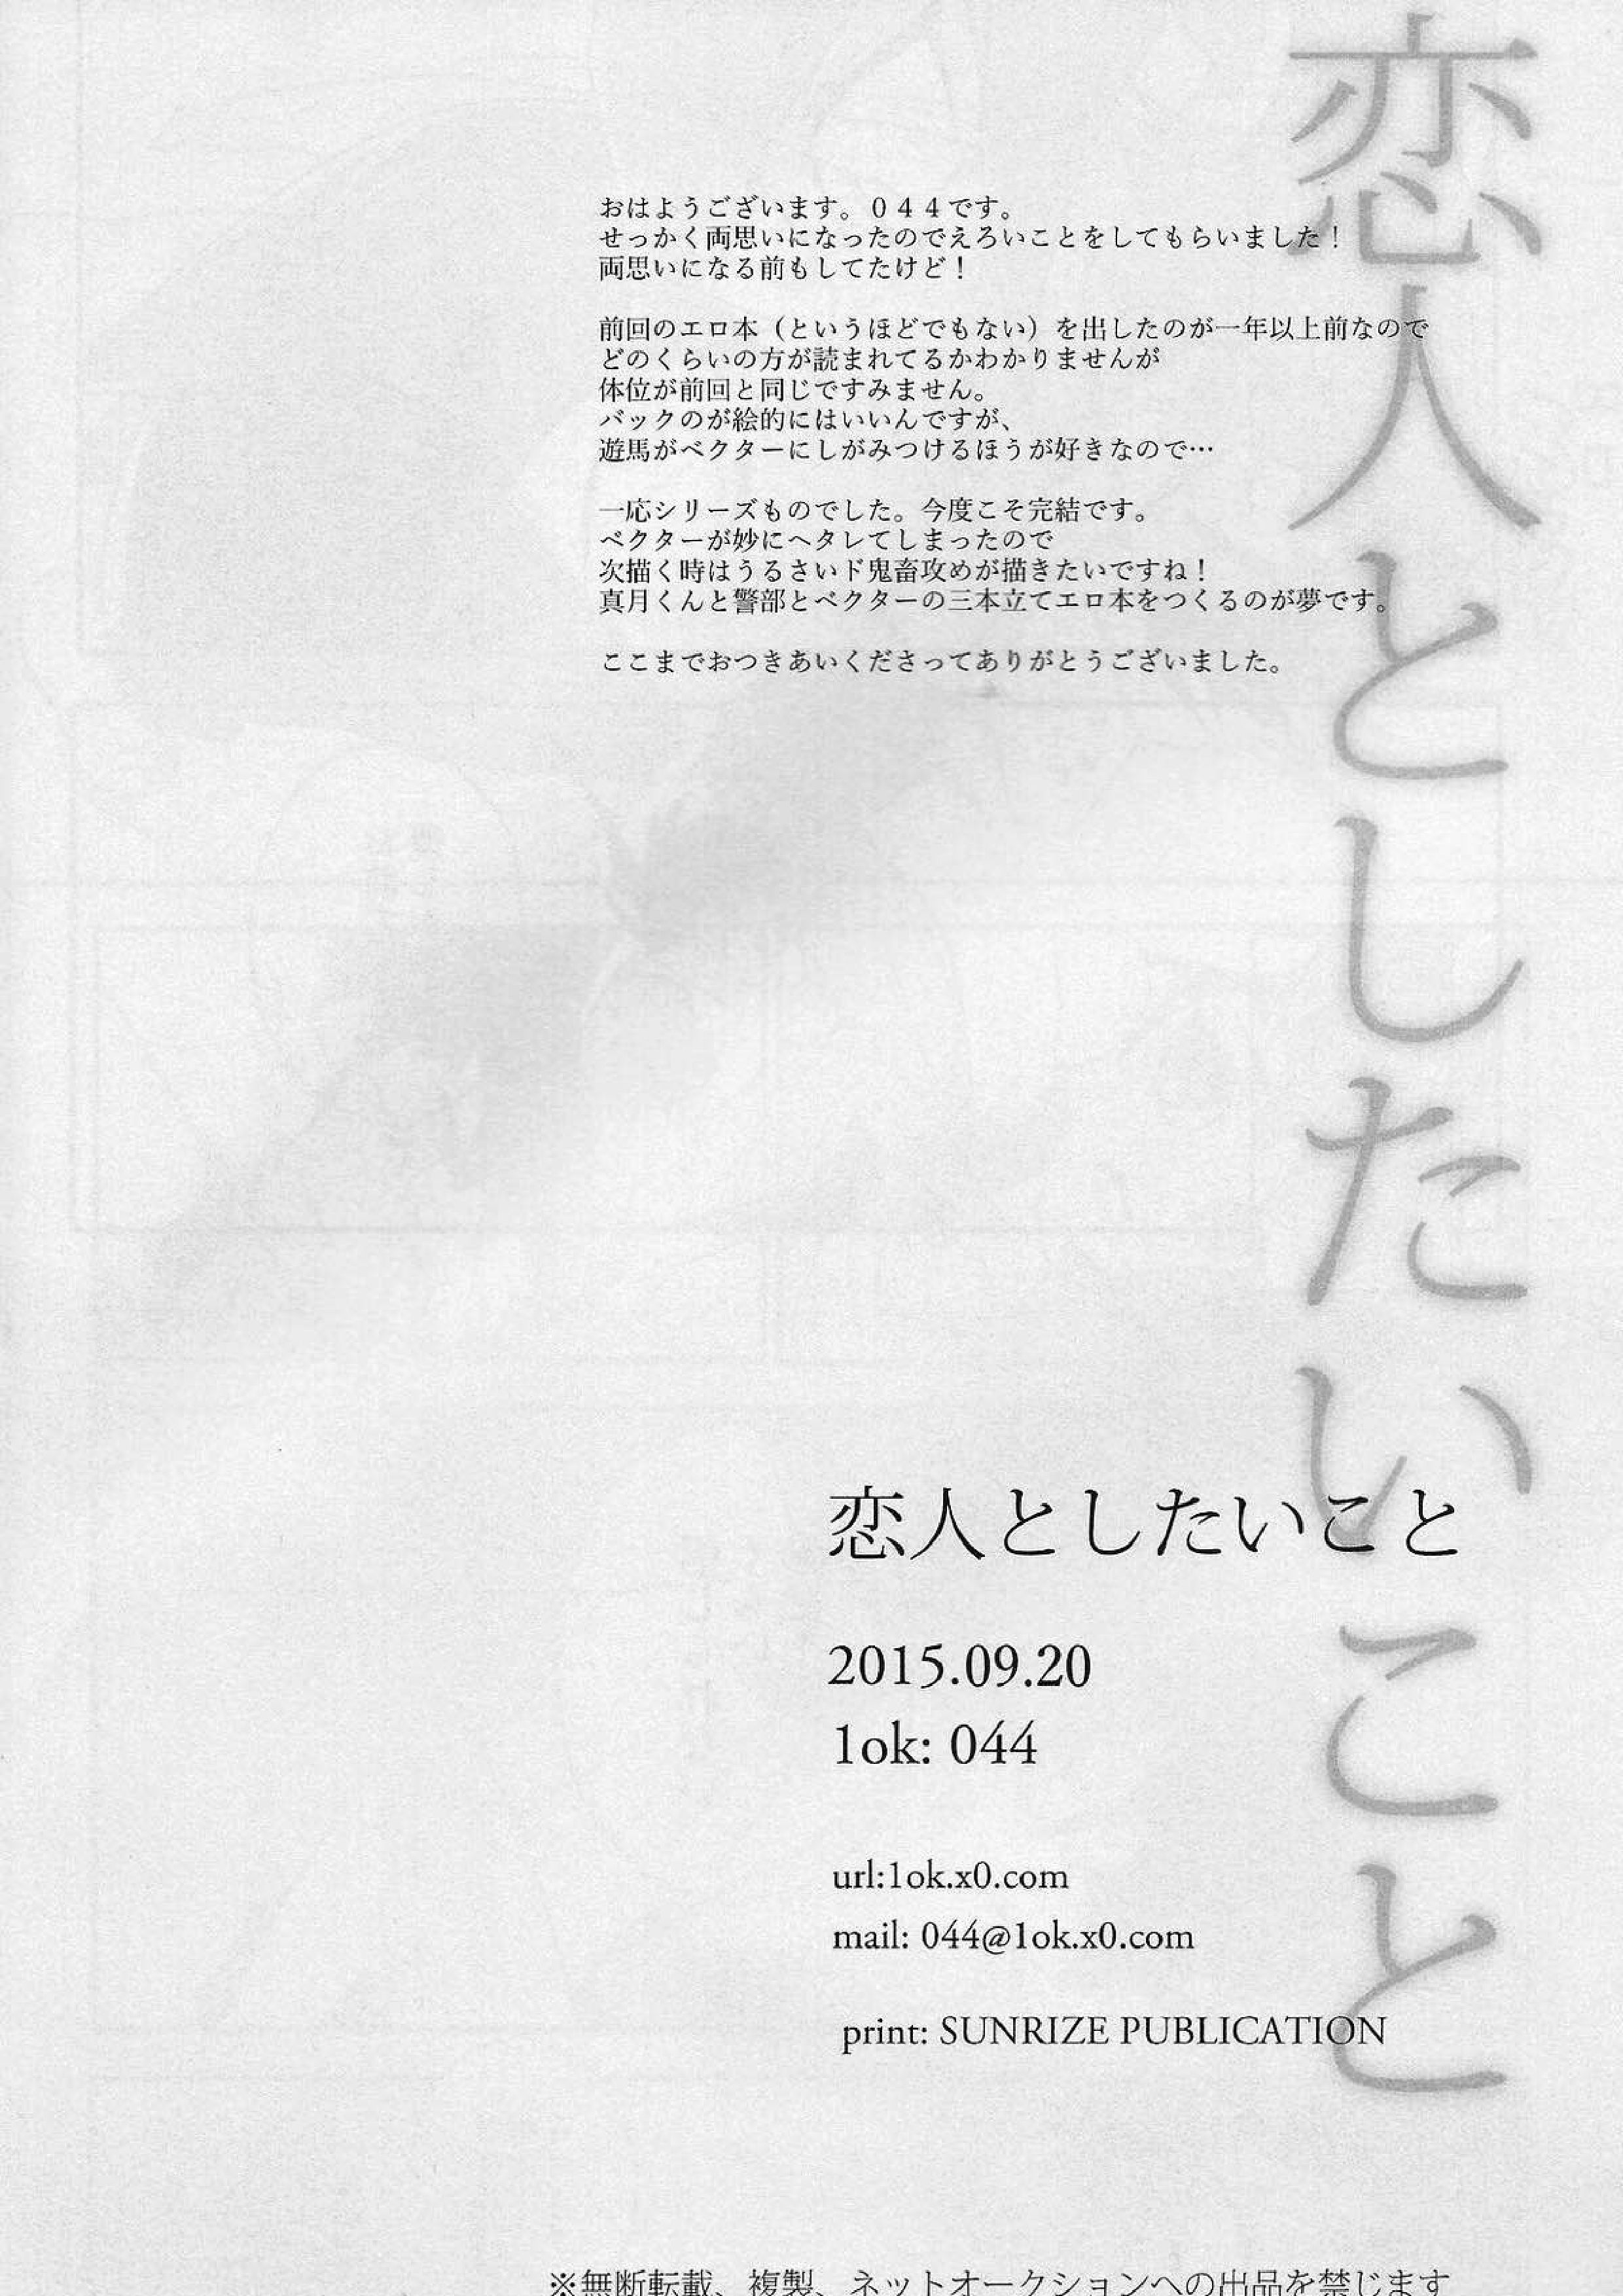 恋人としたいこと
おはようございます。０４４です。
せっかく両思いになったのでえろいことをしてもらいました！
両思いになる前もしてたけど！
前回のエロ本（というほどでもない）を出したのが一年以上前なので
どのくらいの方が読まれてるかわかりませんが
体位が前回と同じですみません。
バックのが絵的にはいいんですが、
遊馬がベクターにしがみつけるほうが好きなので…
一応シリーズものでした。今度こそ完結です。
ベクターが妙にヘタレてしまったので
次描く時はうるさいド鬼畜攻めが描きたいですね！
真月くんと警部とベクターの三本立てエロ本をつくるのが夢です。
ここまでおつきあいくださってありがとうございました。
恋人としたいこと
2015.09.20
1ok: 044
url:1ok.x0.com
mail: 044@1ok.x0.com
print: SUNRIZE PUBLICATION
※無断転載、複製、ネットオークションへの出品を禁じます